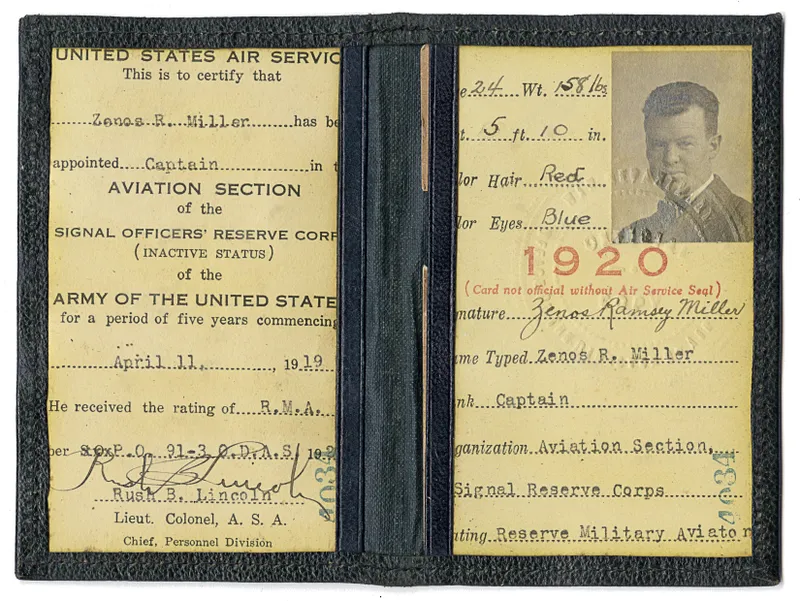 UNITED STATES AIR SERVIC
This is to certify that
Zenos R. Miller has be
appointed Captain in t
AVIATION SECTION
of the
SIGNAL OFFICERS' RESERVE CORP
(INACTIVE STATUS)
of the
ARMY OF THE UNITED STATE
for a period of five years commencing
April 11, 1919
He received the rating of R.M.A.
per P.O. 91-3 O.D.A.S. 19
Rush B. Lincoln
Rush B. Lincoln
Lieut. Colonel, A. S. A.
Chief, Personnel Division
4034
e 24 Wt. 158 lbs
t. 5 ft. 10 in.
lor Hair Red
lor Eyes Blue
1920
(Card not official without Air Service Seal)
nature Zenos Ramsey Miller
me Typed Zenos R. Miller
nk Captain
ganization Aviation Section,
Signal Reserve Corps
ting Reserve Military Aviator
4034